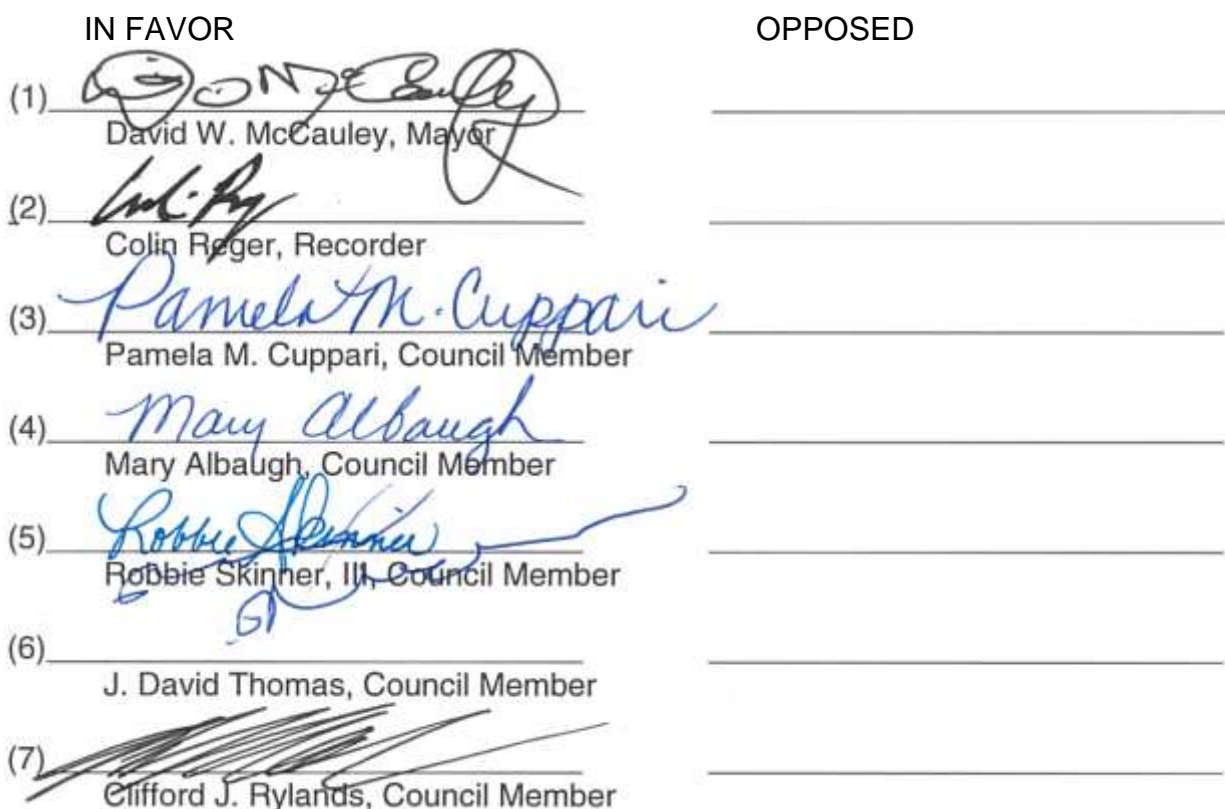 IN FAVOR OPPOSED
(1)
David W. McCauley, Mayor
(2)
Colin Reger, Recorder
(3) Pamela M. Cuppari
Pamela M. Cuppari, Council Member
(4) Mary Albaugh
Mary Albaugh, Council Member
(5) Robbie Skinner
Robbie Skinner, III, Council Member
(6)
J. David Thomas, Council Member
(7)
Clifford J. Rylands, Council Member